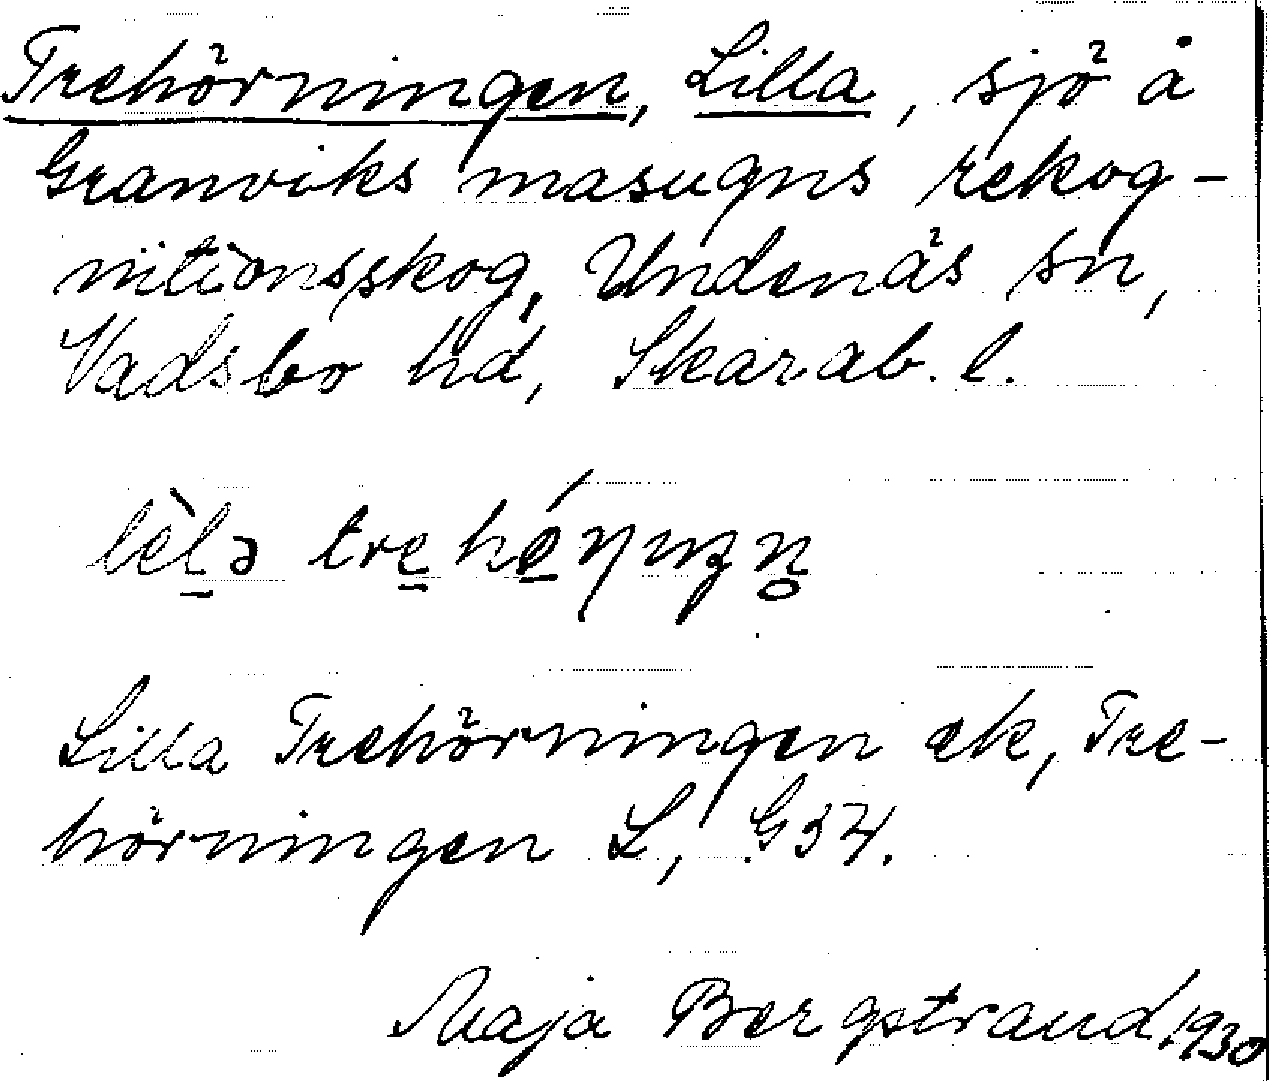 Trehörningen, Lilla, sjö å
Granviks masugns rekog-
nitionsskog, Undenäs sn,
Vadsbo hd, Skarab. l.
Lilla Trehörningen ek, Tre-
hörningen L, G34.
Maja Bergstrand 1930